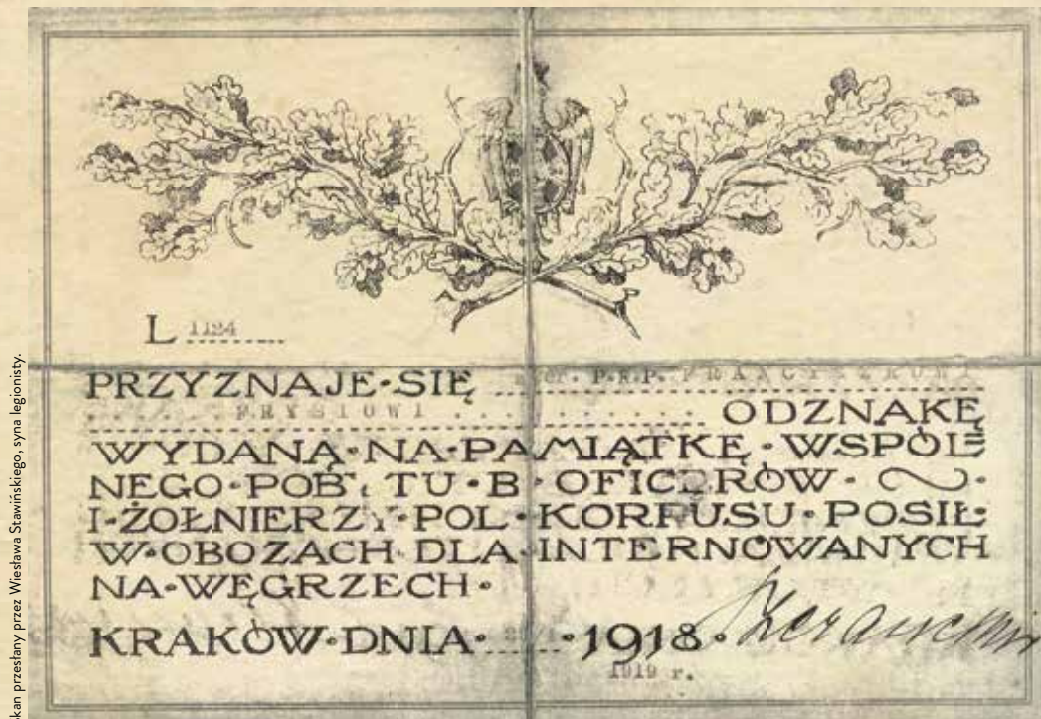 L 1124
PRZYZNAJE·SIĘ P.K.P. FRANCISZKOWI
FRYSIOWI ODZNAKĘ
WYDANĄ·NA·PAMIĄTKĘ·WSPÓL=
NEGO·POB TU·B·OFICERÓW·
I·ŻOŁNIERZY·POL·KORPUSU·POSIŁ·
W·OBOZACH·DLA·INTERNOWANYCH
NA·WĘGRZECH·
KRAKÓW·DNIA· ·1918·
1919 r.
skan przesłany przez Wiesława Stawińskiego, syna legionisty.